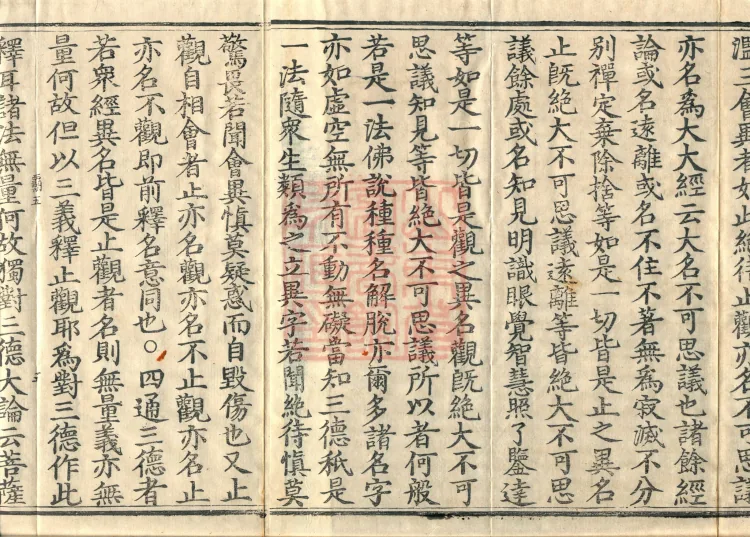 溫三會異者如此絕待止觀亦名不可思議
亦名為大大經云大名不可思議也諸餘經
論或名遠離或名不住不著無為寂滅不分
別禪定棄除捨等如是一切皆是止之異名
止既絕大不可思議遠離等皆絕大不可思
議餘處或名知見明識眼覺智慧照了鑒達
等如是一切皆是觀之異名觀既絕大不可
思議知見等皆絕大不可思議所以者何般
若是一法佛說種種名解脫亦爾多諸名字
亦如虛空無所有不動無礙當知三德秖是
一法隨衆生類為之立異字若聞絶待慎莫
驚畏若聞會異慎莫疑惑而自毀傷也又止
觀自相會者止亦名觀亦名不止觀亦名止
亦名不觀即前釋名意同也○四通三德者
若衆經異名皆是止觀者名則無量義亦無
量何故但以三義釋止觀耶為對三德作此
釋耳諸法無量何故獨對三德大論云菩薩